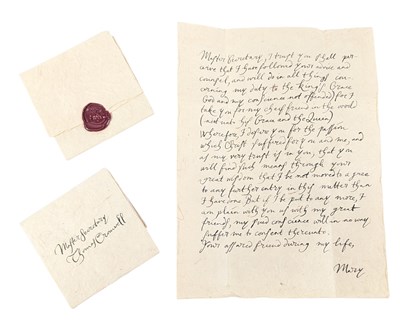 Master Secretary
Thomas Cromwell
Master Secretary, I trust you shall per-
ceive that I have followed your advice and
counsel, and will do in all things con-
cerning my duty to the King's Grace
God and my conscience not offended for I
take you for my chief friend in the world
next unto his Grace and the Queen
Wherefore, I desire you for the passion
which Christ suffered for you and me, and
as my very trust is in you, that you
will find such means through your
great wisdom that I be not moved to agree
to any further entry in this matter than
I have done. But if I be put to any more, I
am plain with you as with my great
friend, my said conscience will in no way
suffer me to consent thereunto.
Your assured friend during my life,
Mary